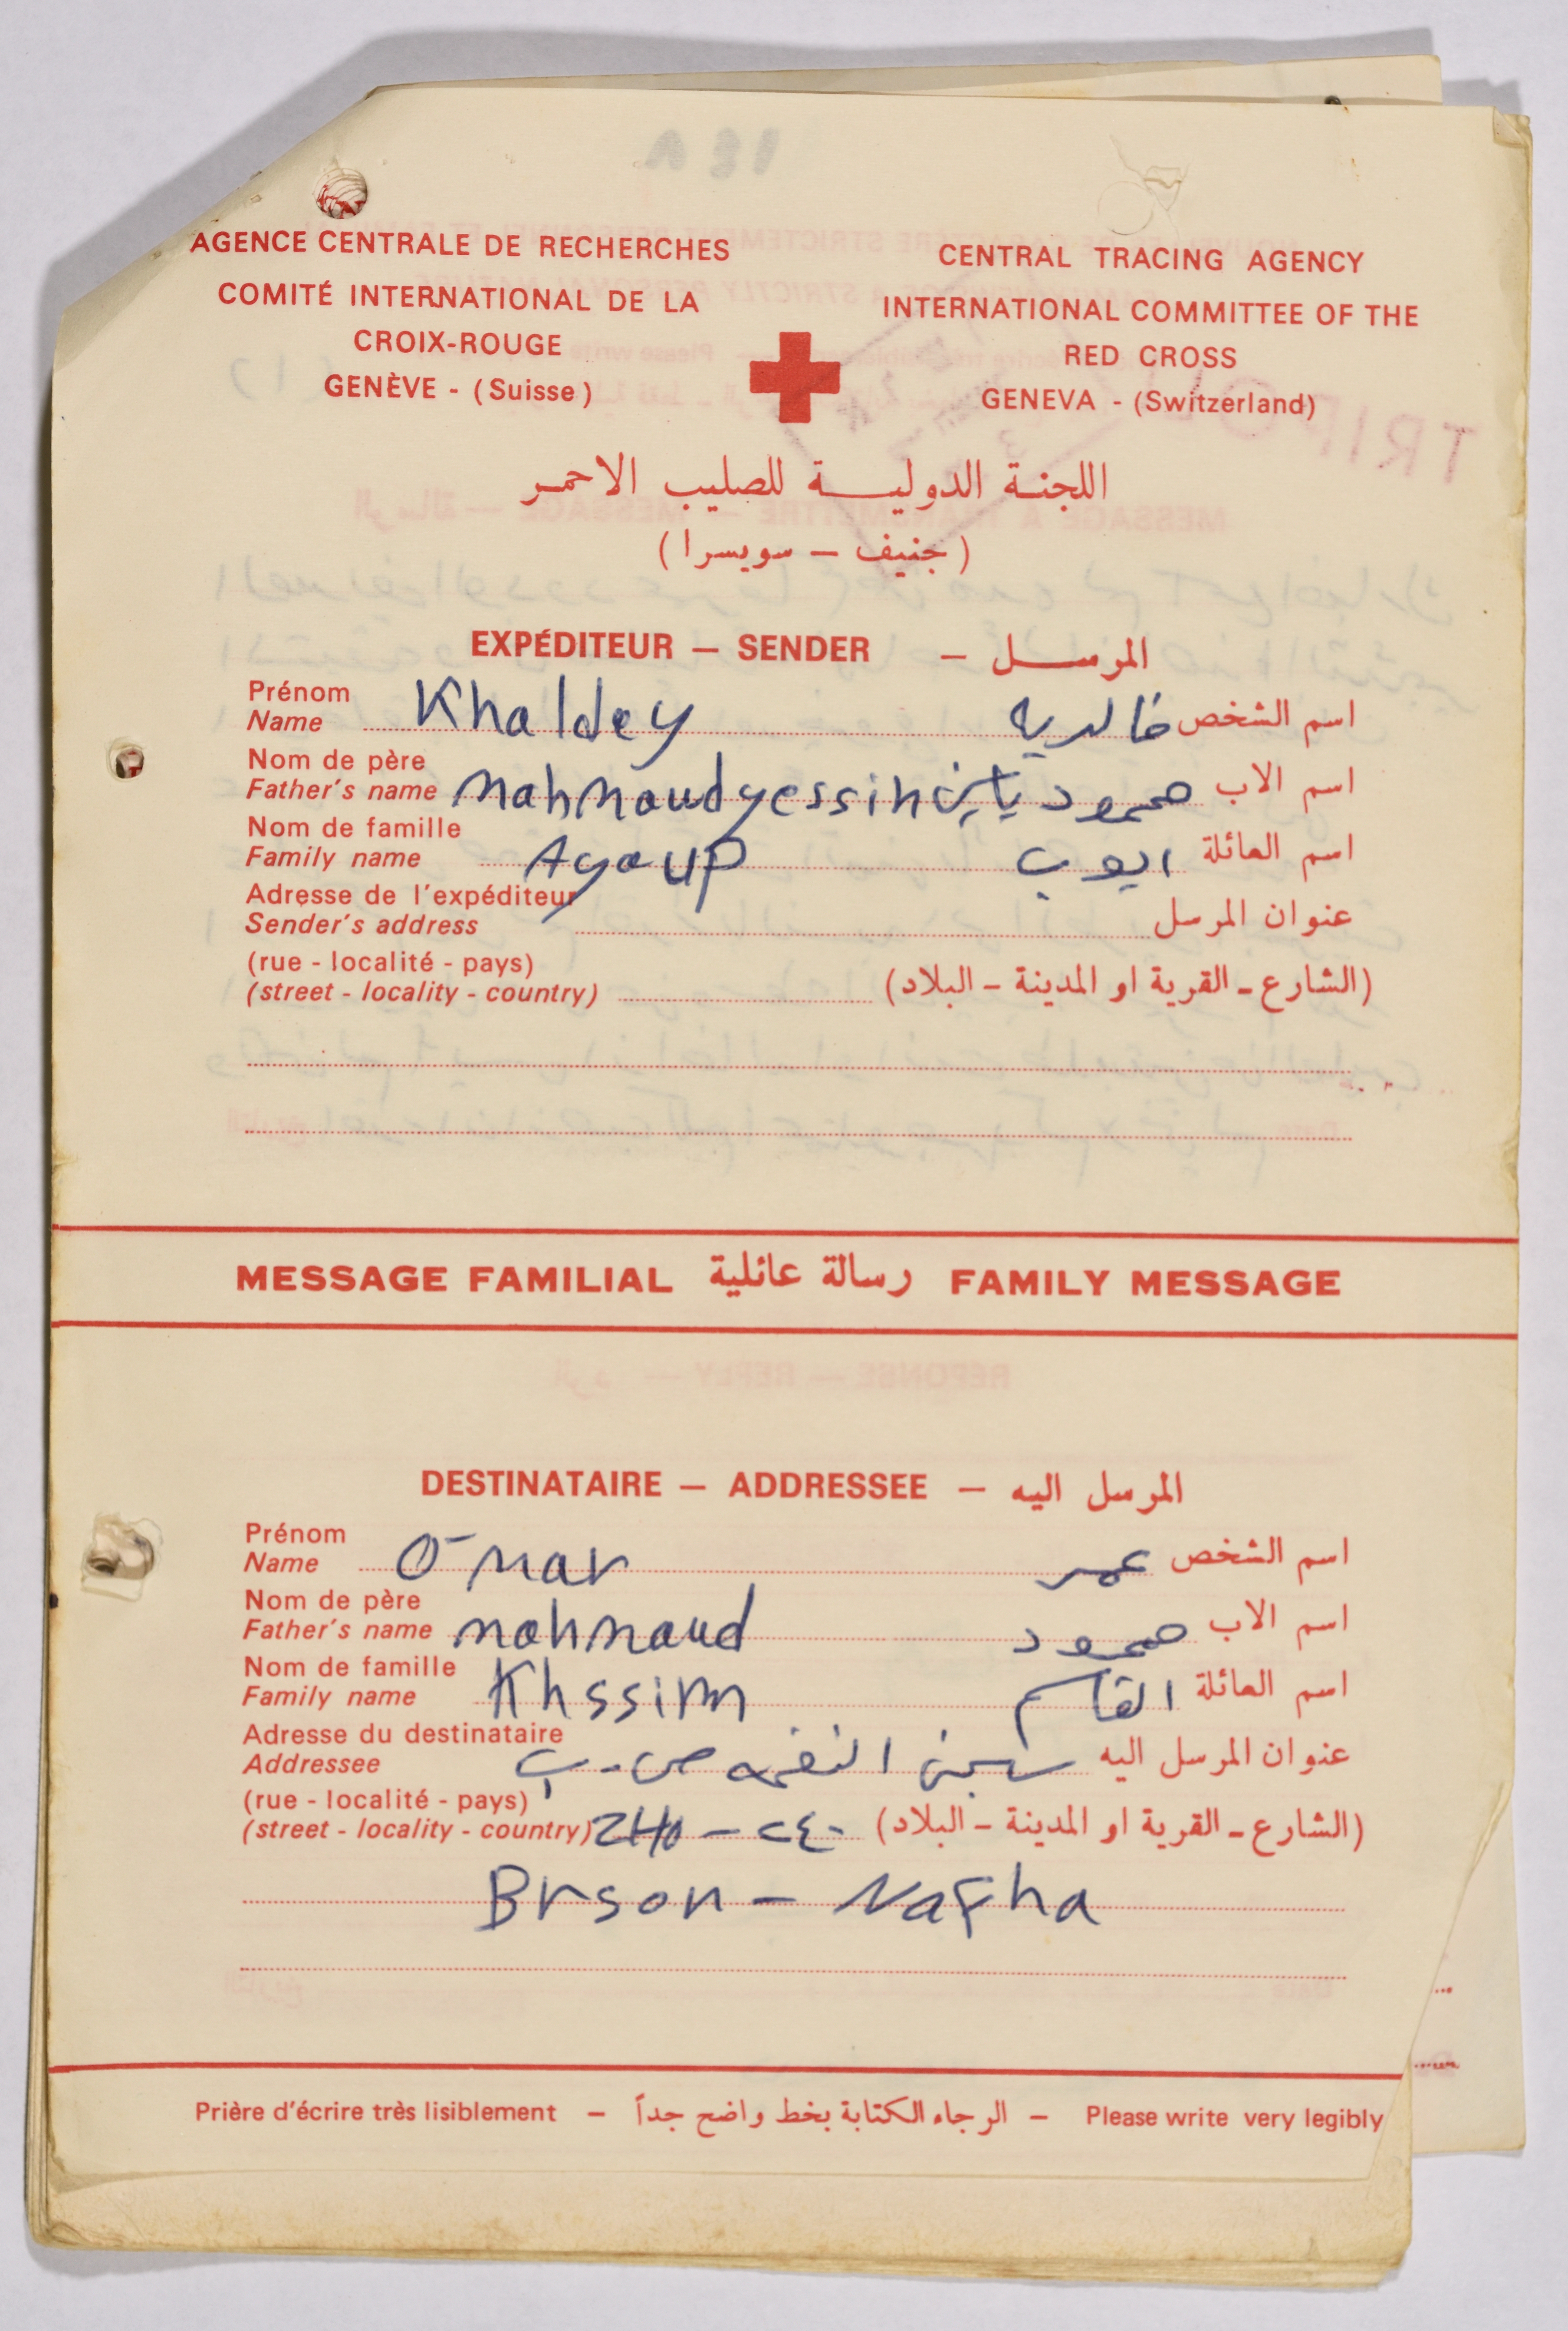 AGENCE CENTRALE DE RECHERCHES
COMITÉ INTERNATIONAL DE LA
CROIX-ROUGE
GENÈVE - (Suisse)
CENTRAL TRACING AGENCY
INTERNATIONAL COMMITTEE OF THE
RED CROSS
GENEVA - (Switzerland)
اللجنة الدولية للصليب الاحمر
(جنيف – سويسرا)
EXPÉDITEUR – SENDER – المرسل
Prénom
Name Khaldey خالديه اسم الشخص
Nom de père
Father's name Mahmoud yessin محمود ياسين اسم الاب
Nom de famille
Family name Ayoup ايوب اسم العائلة
Adresse de l'expéditeur
Sender's address عنوان المرسل
(rue - localité - pays)
(street - locality - country) (الشارع - القرية او المدينة - البلاد)
MESSAGE FAMILIAL رسالة عائلية FAMILY MESSAGE
DESTINATAIRE – ADDRESSEE – المرسل اليه
Prénom
Name Omar عمر اسم الشخص
Nom de père
Father's name mahmoud محمود اسم الاب
Nom de famille
Family name Khssim القاسم اسم العائلة
Adresse du destinataire
Addressee عنوان المرسل اليه سجن النفحه ص.ب
(rue - localité - pays)
(street - locality - country) 240 - ٢٤٠ (الشارع - القرية او المدينة - البلاد)
Brson - Nafha
Prière d'écrire très lisiblement – الرجاء الكتابة بخط واضح جداً – Please write very legibly